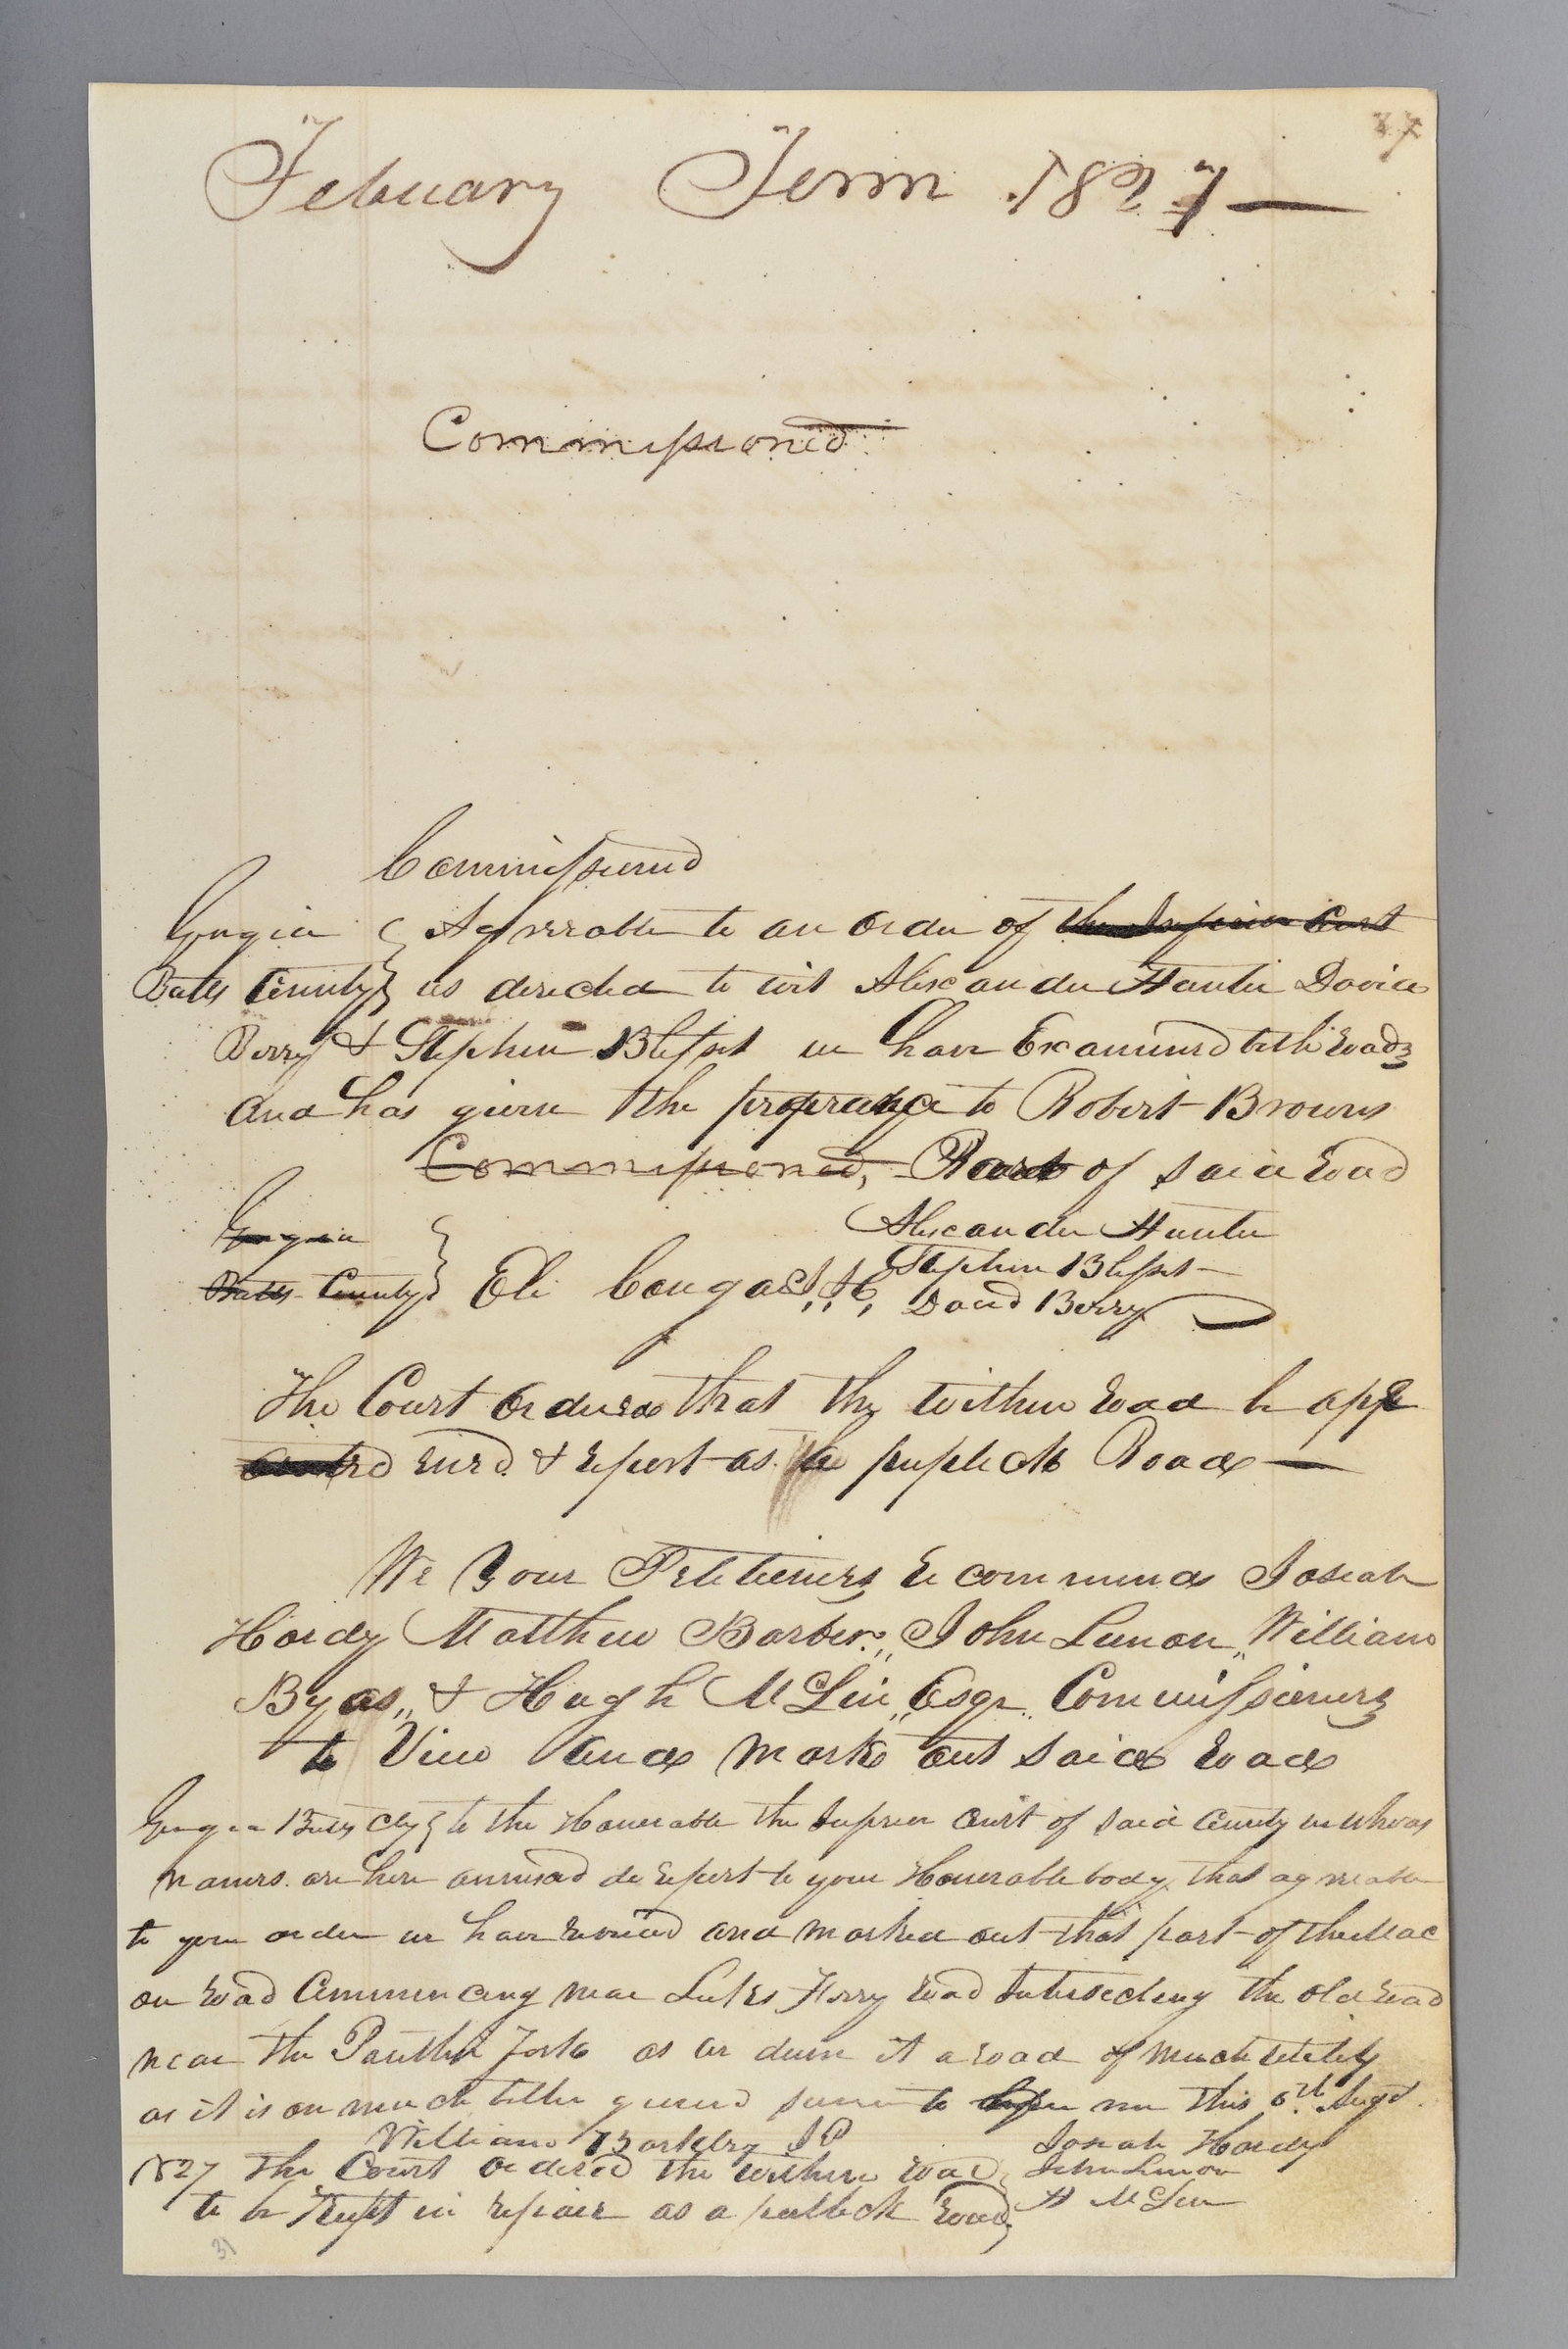 37
Febuary Term 1827
Commissioned
Commissioned
Gorgia } Agreeable to an order of the Inferior Cort
Butts County } as directed to wit Alexander Hunter David
Berry & Stephen Blessit we have Examined both roads
and has given the to Robert Browns
Commissioned, Road of said road
Alexander Hunter
Gorgia
Stephen Blessit
Butts County } Eli Conger J.I.C, David Berry
The Court orderd that the within road be
& report as puplick Road
We Your Petitioners recommend Josiah
Hardy Matthew Barber,, John Lemon,, William
Byas,, & Hugh McLin,, Esqr. Commissioners
to View and mark out said road
Gorgia Butts Cty } to the Honerable the Inferior Cort of said County we whoas
names are here annexed do report to your Honerable body that agreeable
to your order we have reviewd and marked out that part of the Mac
on road Commencing near Lukes Ferry road Intersecting the old road
near the Panther fork as we deem it a road of much utility
as it is on much better ground sworn to before me this 6th Augt.
William Barkley JP Josiah Hardy
1827 The Court ordered the within road John Lemon
to be kept in repair as a publick road, H McLin
31